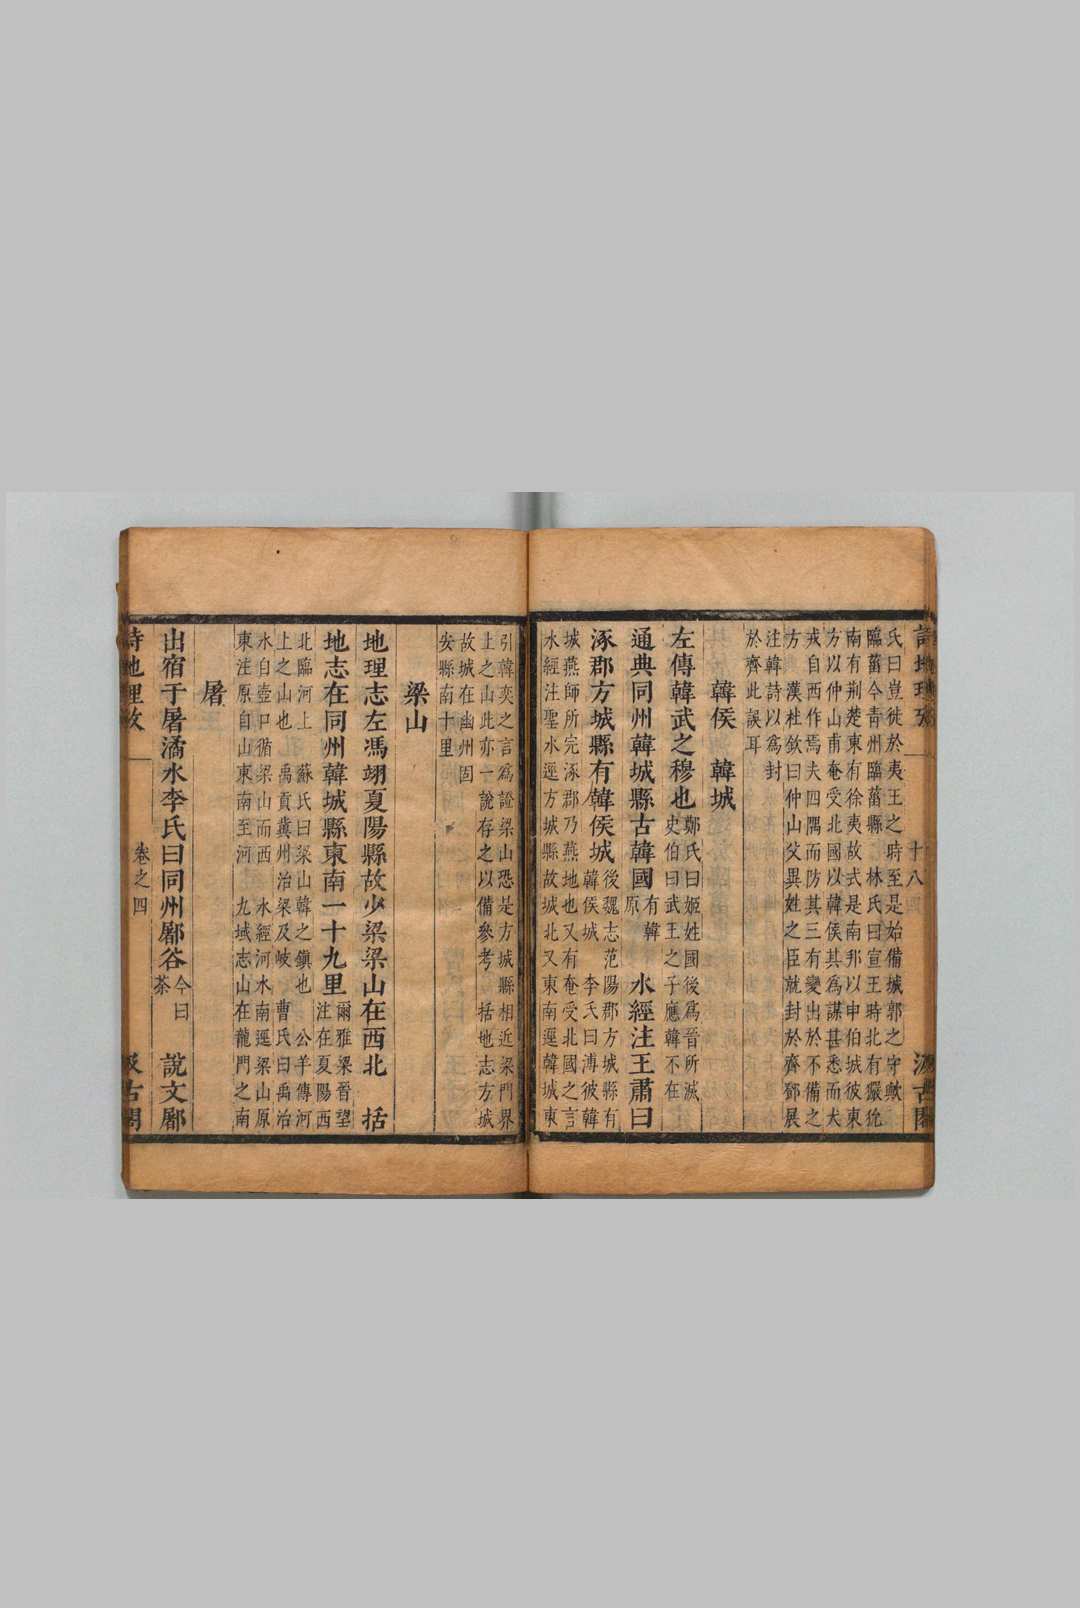 詩地理攷 十八 汲古閣
氏曰豈徒於夷王之時至是始備城郭之守歟
臨菑今青州臨菑縣 林氏曰宣王時北有玁狁
南有荆楚東有徐夷故式是南邦以申伯城彼東
方以仲山甫奄受北國以韓侯其為謀甚悉而犬
戎自西作焉夫四隅而防其三有變出於不備之
方 漢杜欽曰仲山父異姓之臣就封於齊鄧展
注韓詩以為封
於齊此誤耳
韓侯 韓城
左傳韓武之穆也 鄭氏曰姬姓國後為晉所滅
史伯曰武王之子應韓不在
通典同州韓城縣古韓國 有韓
原 水經注王肅曰
涿郡方城縣有韓侯城 後魏志范陽郡方城縣有
韓侯城 李氏曰溥彼韓
城燕師所完涿郡乃燕地也又有奄受北國之言
水經注聖水逕方城縣故城北又東南逕韓城東
引韓奕之言為證梁山恐是方城縣相近梁門界
上之山此亦一說存之以備參考 括地志方城
故城在幽州固
安縣南十里
梁山
地理志左馮翊夏陽縣故少梁梁山在西北 括
地志在同州韓城縣東南一十九里 爾雅梁晉望
注在夏陽西
北臨河上 蘇氏曰梁山韓之鎮也 公羊傳河
上之山也 禹貢冀州治梁及岐 曹氏曰禹治
水自壺口循梁山而西 水經河水南逕梁山原
東注原自山東南至河 九域志山在龍門之南
屠
出宿于屠潏水李氏曰同州鄜谷 今曰
荼 說文鄜
詩地理攷 卷之四 汲古閣